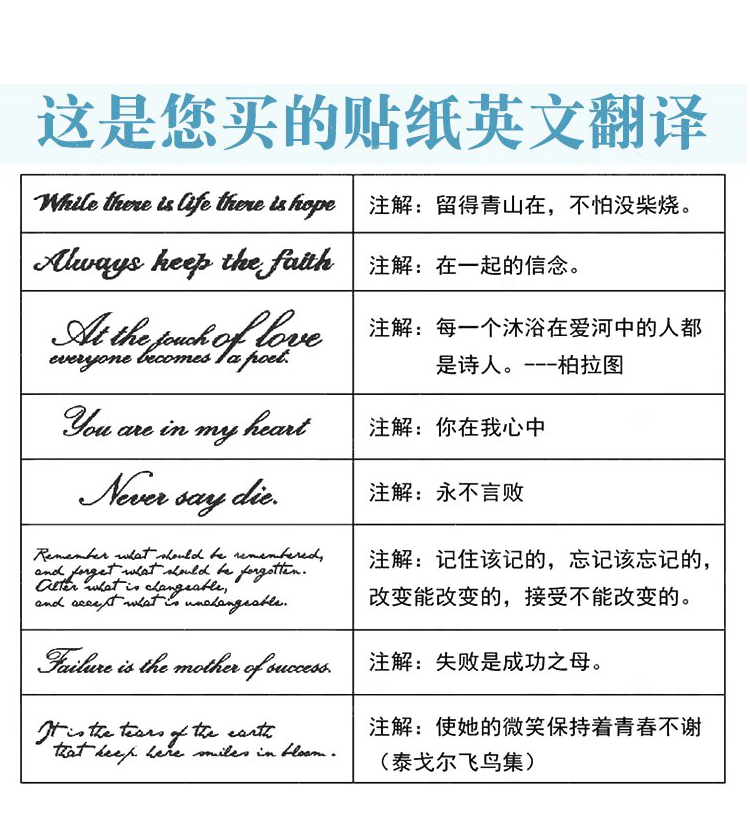 这是您买的贴纸英文翻译
While there is life there is hope
注解：留得青山在，不怕没柴烧。
Always keep the faith
注解：在一起的信念。
At the touch of love
everyone becomes a poet.
注解：每一个沐浴在爱河中的人都
是诗人。---柏拉图
You are in my heart
注解：你在我心中
Never say die.
注解：永不言败
Remember what should be remembered,
and forget what should be forgotten.
Alter what is changeable,
and accept what is unchangeable.
注解：记住该记的，忘记该忘记的，
改变能改变的，接受不能改变的。
Failure is the mother of success.
注解：失败是成功之母。
It is the tears of the earth
that keep here smiles in bloom.
注解：使她的微笑保持着青春不谢
（泰戈尔飞鸟集）